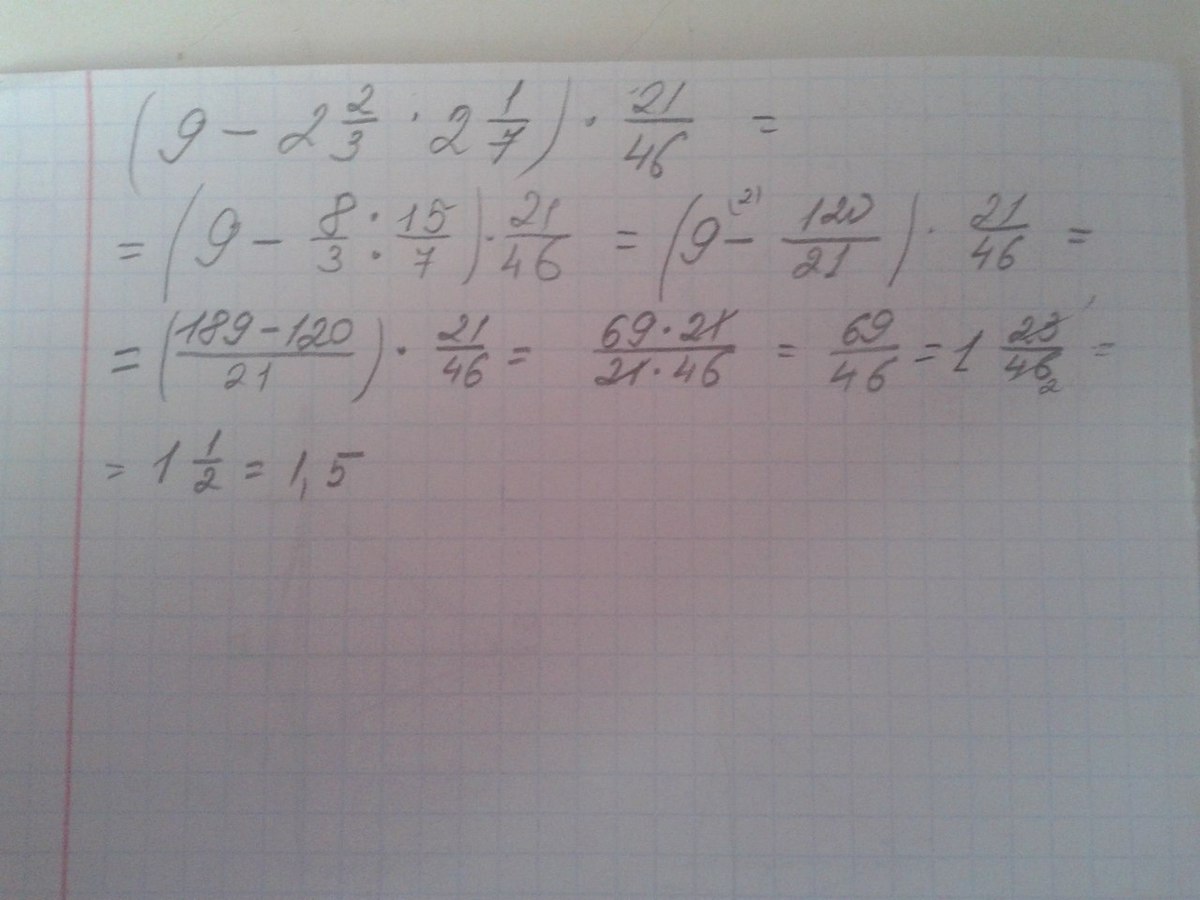 (9 - 2 2/3 · 2 1/7) · 21/46 =
= (9 - 8/3 : 15/7) · 21/46 = (9⁽²¹⁾ - 120/21) · 21/46 =
= ((189-120)/21) · 21/46 = (69·21)/(21·46) = 69/46 = 1 23/46 ₂ =
= 1 1/2 = 1,5